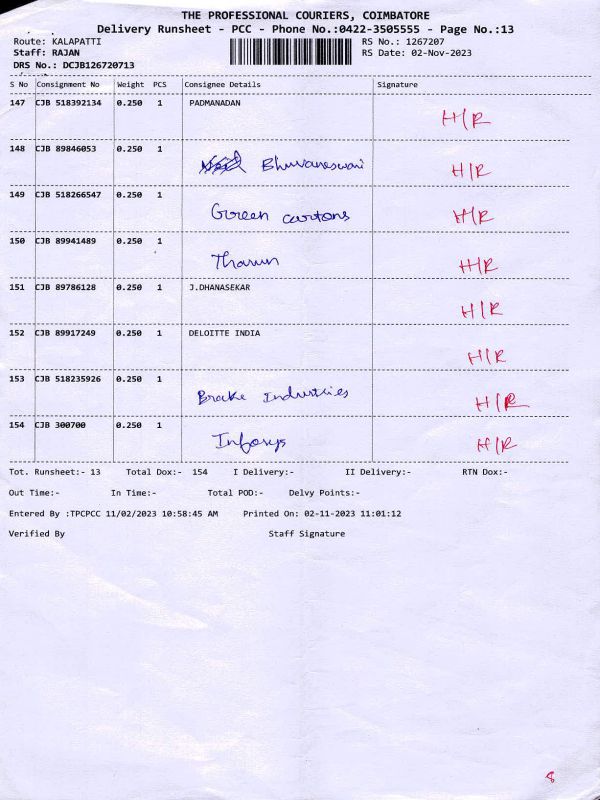 THE PROFESSIONAL COURIERS, COIMBATORE
Delivery Runsheet - PCC - Phone No.:0422-3505555 - Page No.:13
Route: KALAPATTI RS No.: 1267207
Staff: RAJAN RS Date: 02-Nov-2023
DRS No.: DCJB126720713
S No Consignment No Weight PCS Consignee Details Signature
147 CJB 518392134 0.250 1 PADMANADAN H/R
148 CJB 89846053 0.250 1 Bhuvaneswari H/R
149 CJB 518266547 0.250 1 Green cartons H/R
150 CJB 89941489 0.250 1 Tharun H/R
151 CJB 89786128 0.250 1 J.DHANASEKAR H/R
152 CJB 89917249 0.250 1 DELOITTE INDIA H/R
153 CJB 518235926 0.250 1 Brake Industries H/R
154 CJB 300700 0.250 1 Infosys H/R
Tot. Runsheet:- 13 Total Dox:- 154 I Delivery:- II Delivery:- RTN Dox:-
Out Time:- In Time:- Total POD:- Delvy Points:-
Entered By :TPCPCC 11/02/2023 10:58:45 AM Printed On: 02-11-2023 11:01:12
Verified By Staff Signature
8